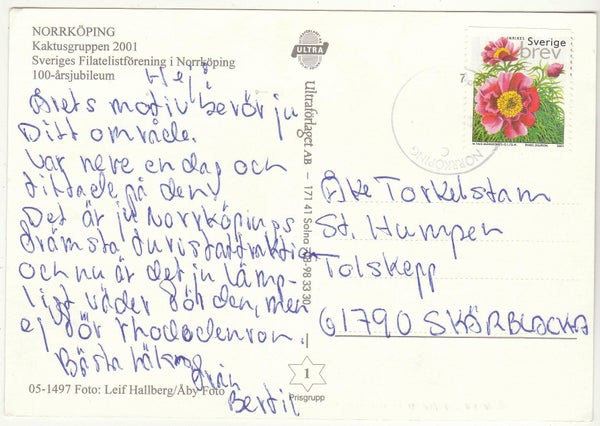 NORRKÖPING
Kaktusgruppen 2001
Sveriges Filatelistförening i Norrköping
100-årsjubileum
Hej!
Årets motiv berör ju
Ditt område.
Var nere en dag och
tittade på den.
Det är ju Norrköpings
främsta turistattraktion
och nu är det ju lämp-
ligt väder för den, men
ej för rhododenron.
Bästa hälsn
från
Bertil
05-1497 Foto: Leif Hallberg/Åby Foto
ULTRA
Ultraförlaget AB – 171 41 Solna 08-98 33 30
1
Prisgrupp
Sverige
brev
INRIKES
2001
7
NORRKÖPING
C
Åke Torkelstam
St. Humpen
Tolskepp
61790 SKÄRBLACKA